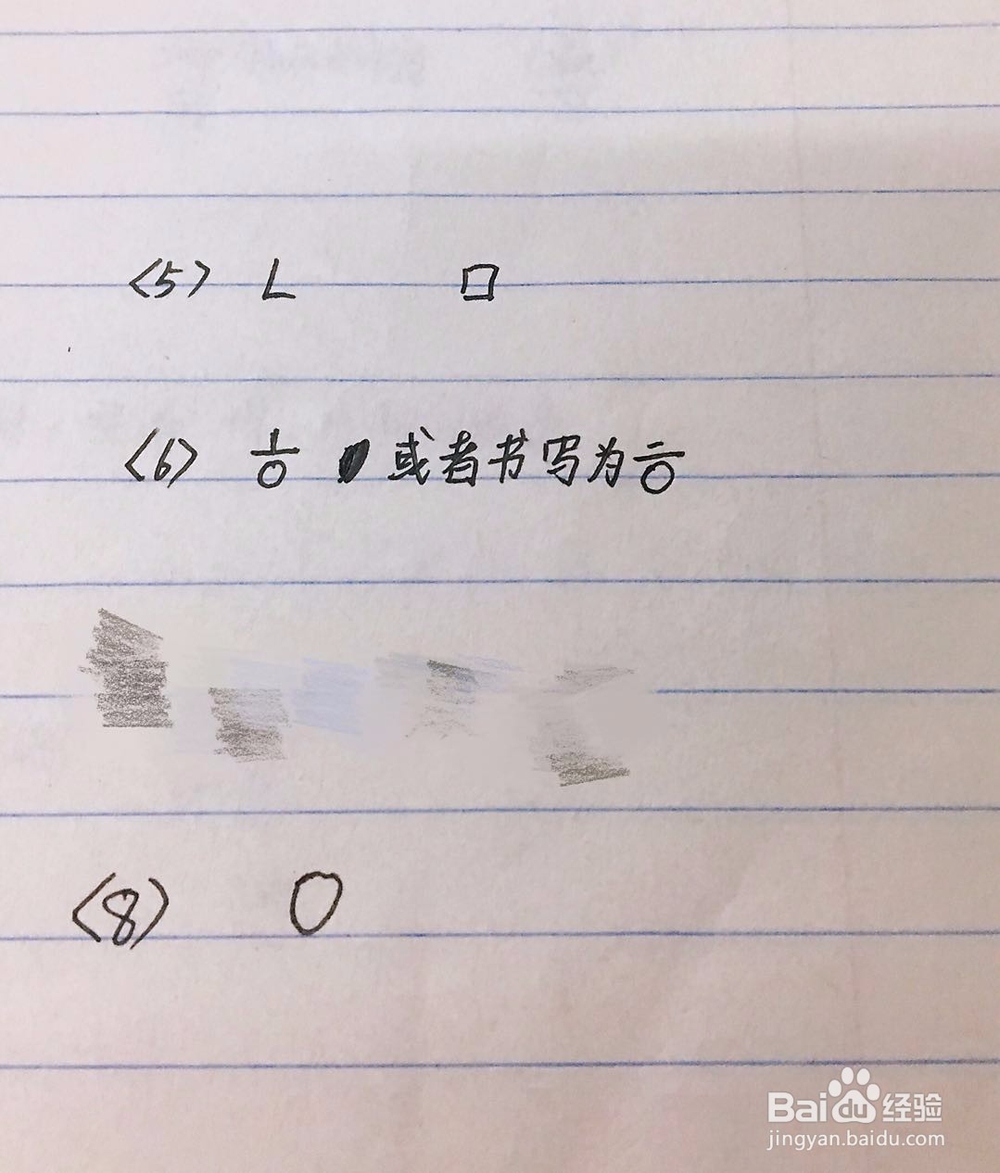 <5> L 口
<6> 1/0 或者书写为二/0
<8> 0
Baidu经验
jingyan.baidu.com